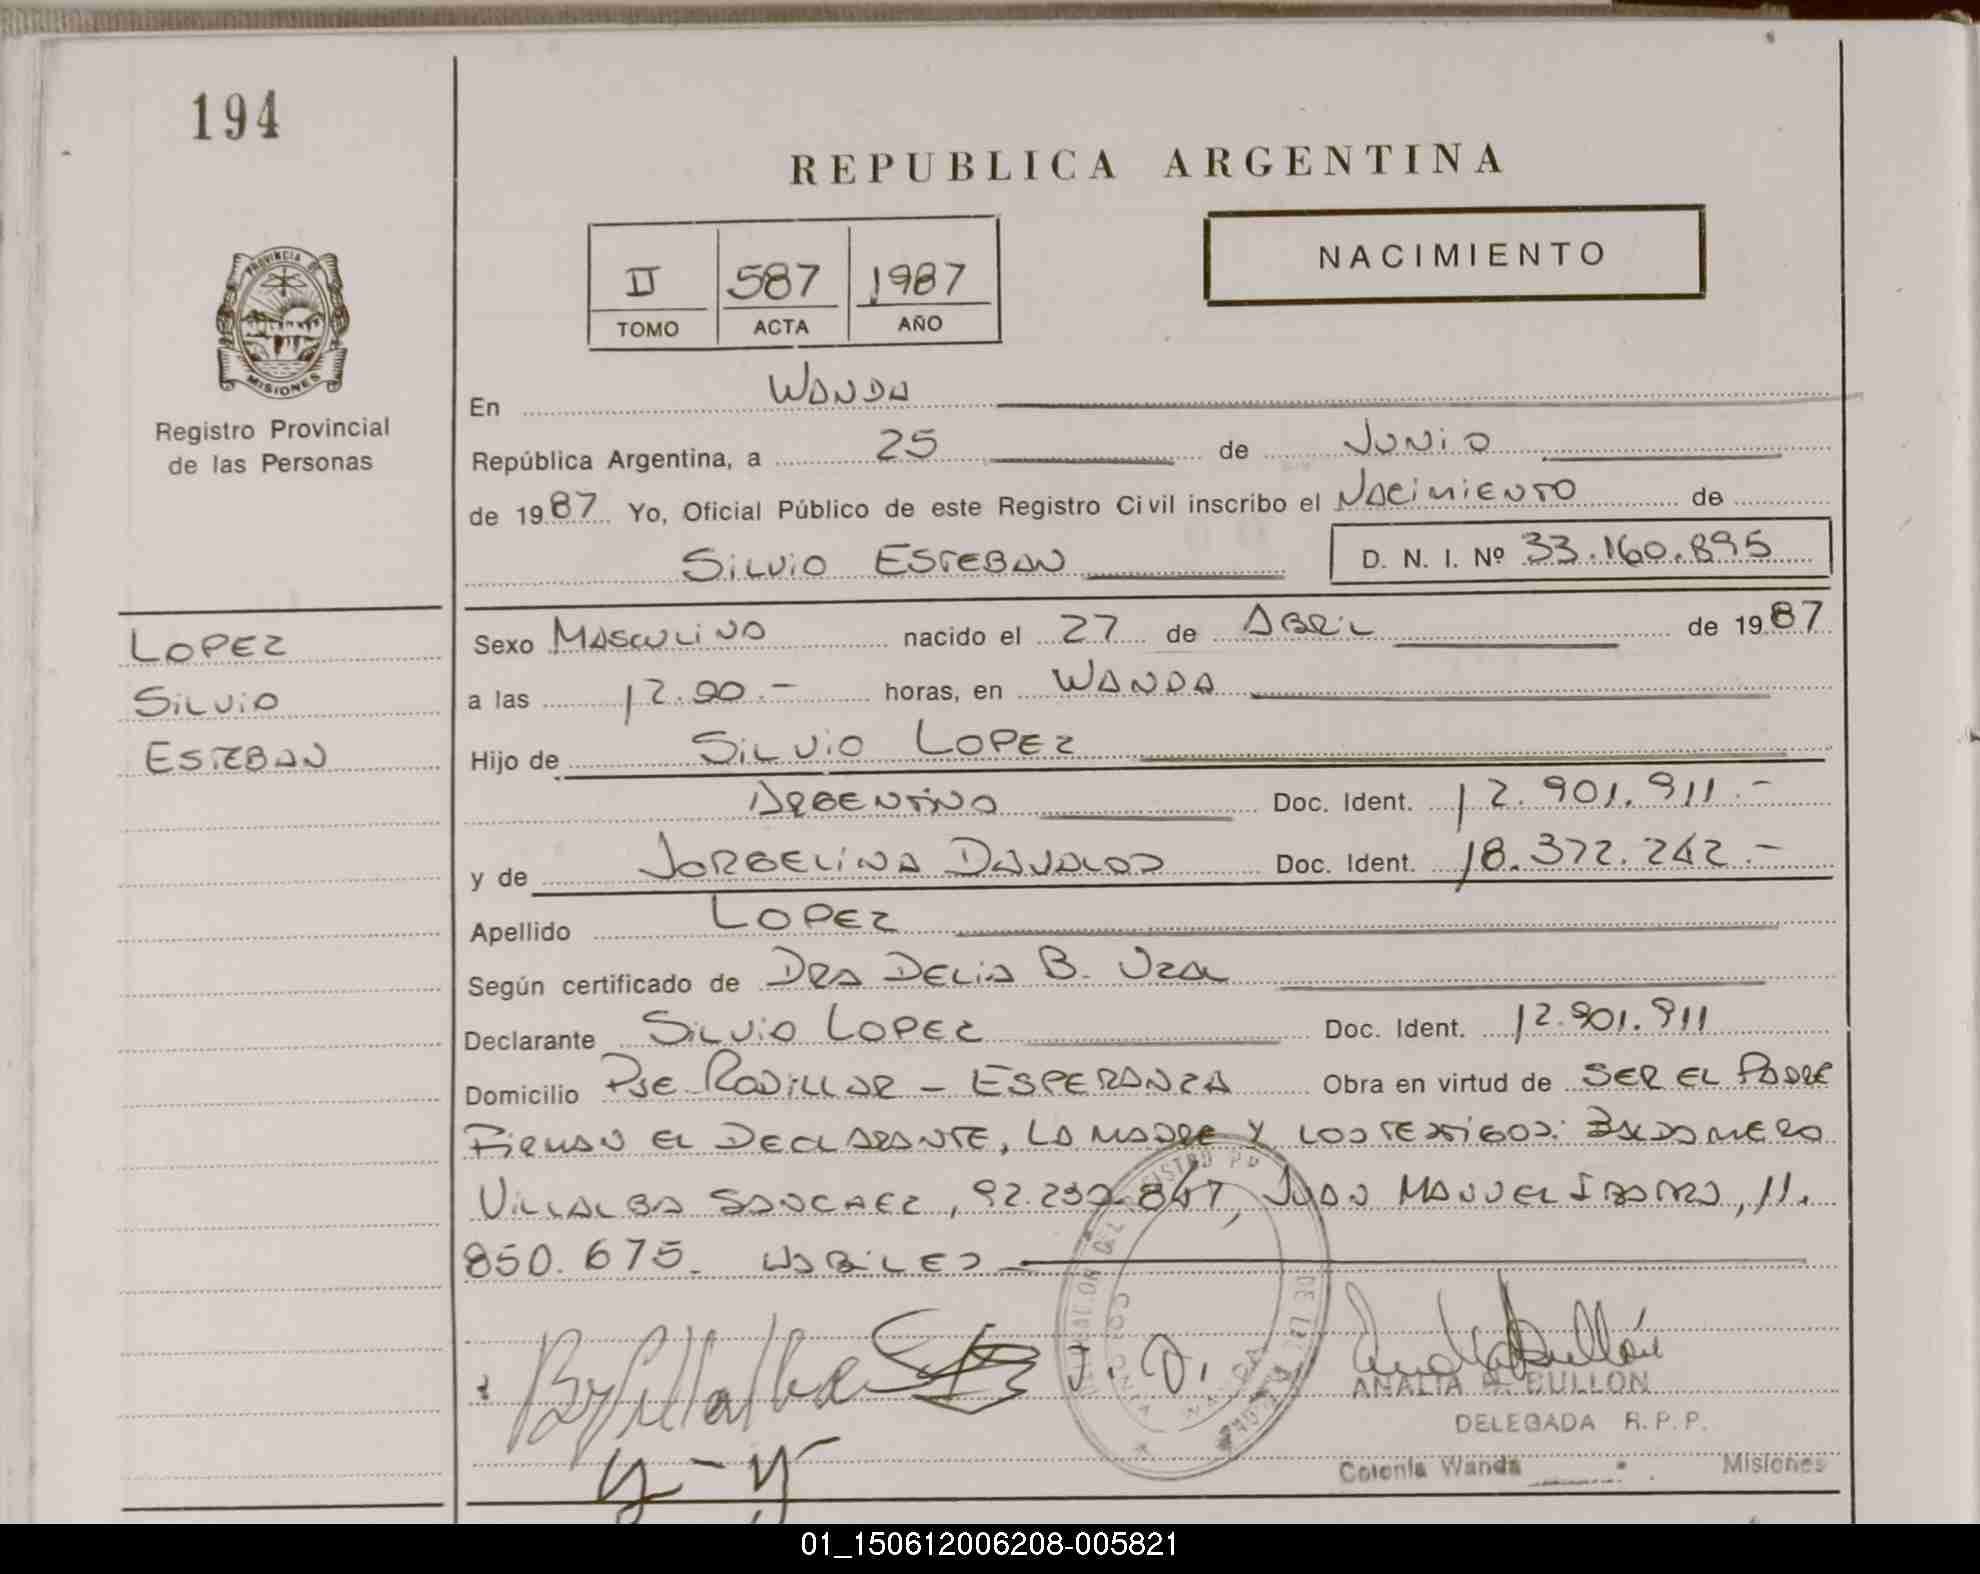 194
REPUBLICA ARGENTINA
NACIMIENTO
II 587 1987
TOMO ACTA AÑO
PROVINCIA DE
MISIONES
Registro Provincial
de las Personas
En WANDA
República Argentina, a 25 de JUNIO
de 1987 Yo, Oficial Público de este Registro Civil inscribo el NACIMIENTO de
SILVIO ESTEBAN D. N. I. Nº 33.160.895
LOPEZ
SILVIO
ESTEBAN
Sexo MASCULINO nacido el 27 de ABRIL de 1987
a las 12.00.- horas, en WANDA
Hijo de SILVIO LOPEZ
ARGENTINO Doc. Ident. 12.901.911.-
y de JORGELINA DAVALOS Doc. Ident. 18.372.242.-
Apellido LOPEZ
Según certificado de DRA DELIA B.
Declarante SILVIO LOPEZ Doc. Ident. 12.901.911
Domicilio PJE. RODILLAR - ESPERANZA Obra en virtud de SER EL PADRE
FIRMAN EL DECLARANTE, LA MADRE Y LOS TESTIGOS: BALDOMERO
VILLALBA SANCHEZ, 92.230.847, JUAN MANUEL IBARRA, 11.
850.675. HABILES
J. D.
ANALIA A. BULLON
DELEGADA R.P.P.
Colonia Wanda Misiones
01_150612006208-005821